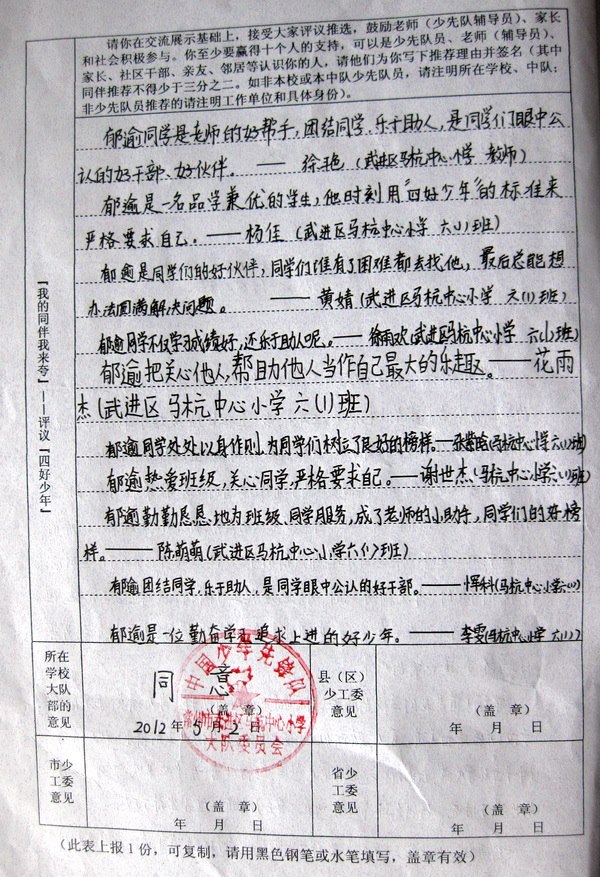 请你在交流展示基础上，接受大家评议推选，鼓励老师（少先队辅导员）、家长
和社会积极参与。你至少要赢得十个人的支持，可以是少先队员、老师（辅导员）、
家长、社区干部、亲友、邻居等认识你的人，请他们为你写下推荐理由并签名（其中
同伴推荐不得少于三分之二。如非本校或本中队少先队员，请注明所在学校、中队；
非少先队员推荐的请注明工作单位和具体身份）。
『我的同伴我来夸』——评议『四好少年』
郁逾同学是老师的好帮手，团结同学，乐于助人，是同学们眼中公
认的好干部、好伙伴。——徐艳（武进区马杭中心小学 教师）
郁逾是一名品学兼优的学生，他时刻用“四好少年”的标准来
严格要求自己。——杨佳（武进区马杭中心小学 六(1)班）
郁逾是同学们的好伙伴，同学们谁有了困难都去找他，最后总能想
办法圆满解决问题。——黄婧（武进区马杭中心小学 六(1)班）
郁逾同学不仅学习成绩好，还乐于助人呢。——徐雨欢（武进区马杭中心小学 六(1)班）
郁逾把关心他人，帮助他人当作自己最大的乐趣。——花雨
杰（武进区马杭中心小学六(1)班）
郁逾同学处处以身作则，为同学们树立了良好的榜样。——张（马杭中心小学六(1)班）
郁逾热爱班级，关心同学，严格要求自己。——谢世杰（马杭中心小学六(1)班）
郁逾勤勤恳恳地为班级、同学服务，成了老师的小助手，同学们的好榜
样。——陈萌萌（武进区马杭中心小学六(1)班）
郁逾团结同学，乐于助人，是同学眼中公认的好干部。——恽科（马杭中心小学六(1)）
郁逾是一位勤奋学习追求上进的好少年。——李雯（马杭中心小学 六(1)）
所在
学校
大队
部的
意见
同意
（盖 章）
2012年5月2日
中国少年先锋队
大队委员会
县（区）
少工委
意见
（盖 章）
年 月 日
市少
工委
意见
（盖 章）
年 月 日
省少
工委
意见
（盖 章）
年 月 日
（此表上报1份，可复制，请用黑色钢笔或水笔填写，盖章有效）